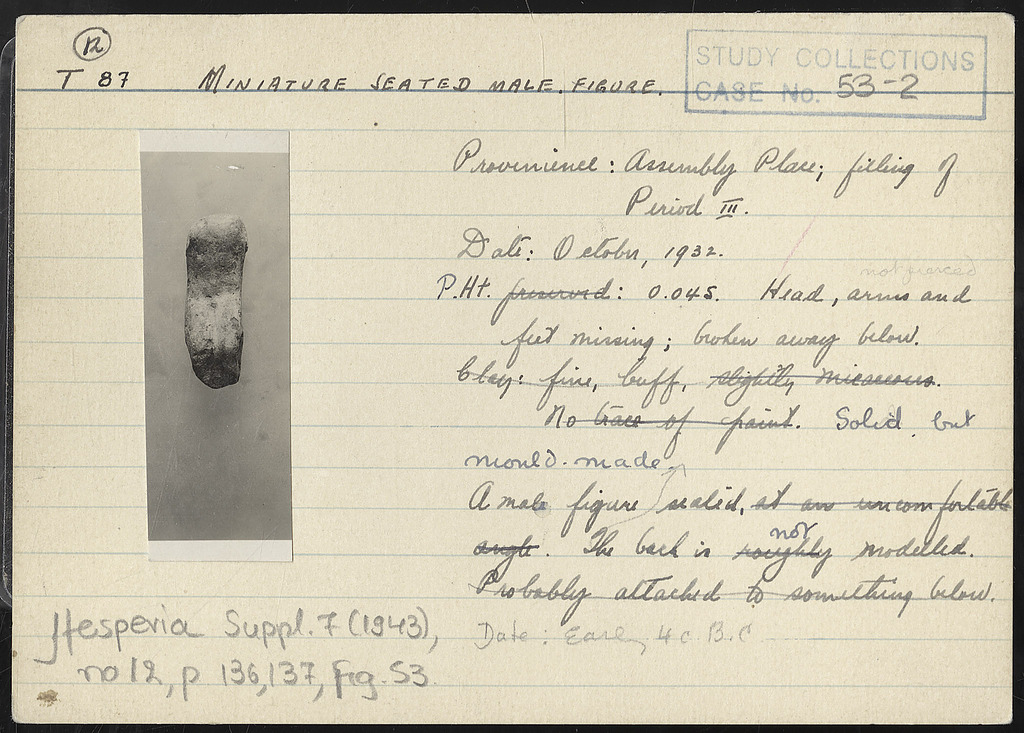 12
T 87 MINIATURE SEATED MALE FIGURE.
STUDY COLLECTIONS
CASE No. 53-2
Provenience: Assembly Place; filling of
Period III.
Date: October, 1932.
not pierced
P.Ht. preserved: 0.045. Head, arms and
feet missing; broken away below.
Clay: fine, buff, slightly micaceous.
No trace of paint. Solid but
mould-made.
A male figure seated, at an uncomfortable
angle. The back is roughly not modelled.
Probably attached to something below.
Date: Early 4 c. B.C
Hesperia Suppl. 7 (1943),
no 12, p 136,137, fig. 53.